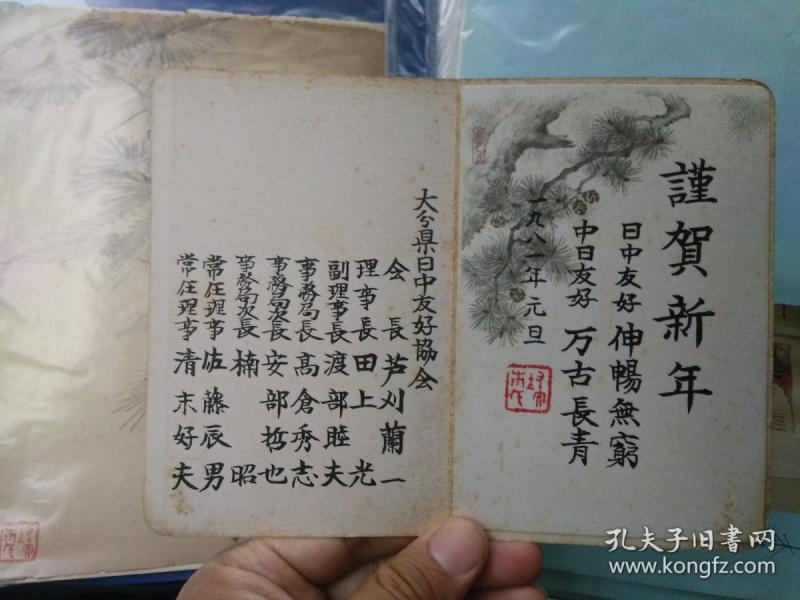 謹賀新年
日中友好 伸暢無窮
中日友好 万古長青
一九八一年元旦
大分県日中友好協会
会長 芦刈蘭一
理事長 田上光
副理事長 渡部睦夫
事務局長 高倉秀志
事務局次長 安部哲也
事務局次長 楠昭
常任理事 佐藤辰男
常任理事 清末好夫
孔夫子旧书网
www.kongfz.com